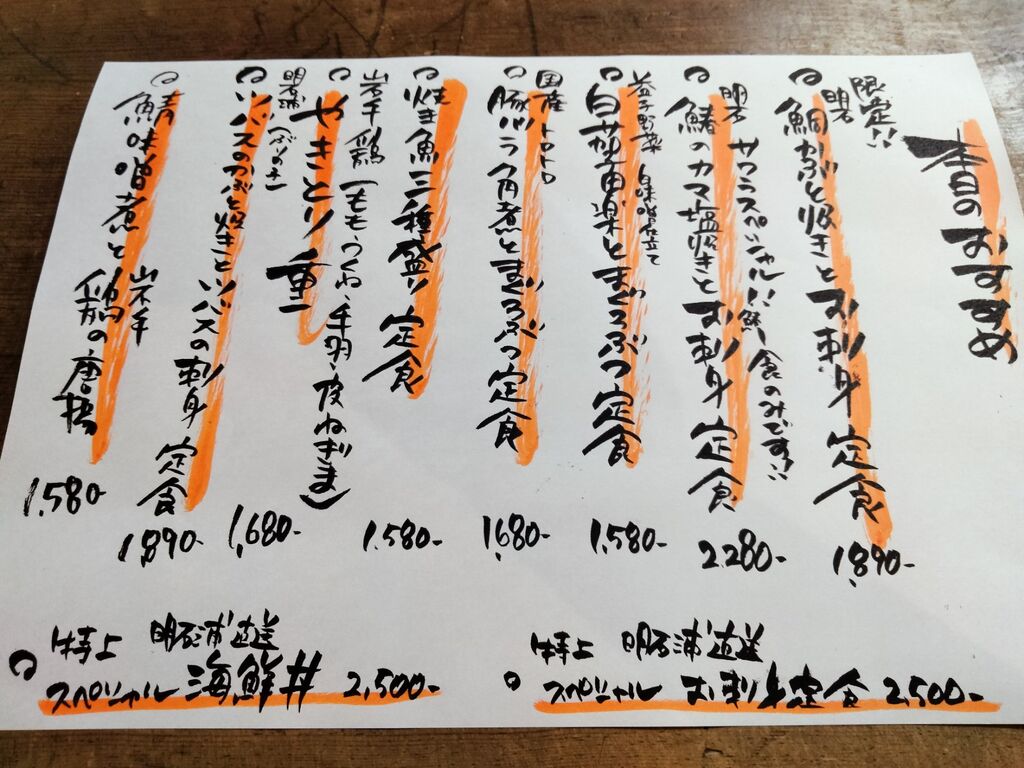 本日のおすすめ
限定!!
明石
鯛かぶと炊きとお刺身定食
1,890-
サワラスペシャル!!
食のみです!!
明石
鰆のカマ塩焼きとお刺身定食
2,280-
益子野菜 白味噌仕立て
とまぐろぶつ定食
1,580-
国産トロトロ
豚バラ角煮とまぐろぶつ定食
1,680-
焼き魚三種盛り定食
1,580-
やきとり重
岩手鶏(もも、つくね、手羽、皮ねぎま)
1,680-
明石浦(ぶりの子)
ツバスのかぶと炊きとツバスの刺身定食
1,890-
鯖
魚味噌煮と岩手鶏の唐揚
1,580-
特上 明石浦直送
スペシャル お刺身定食 2,500-
特上 明石浦直送
スペシャル 海鮮丼 2,500-